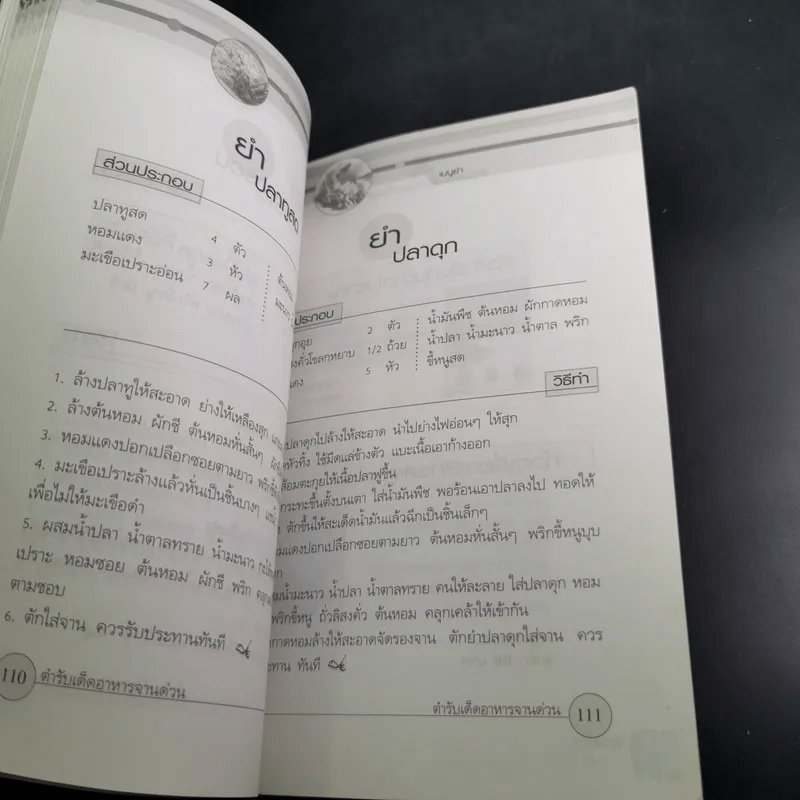 ยำ
ปลาทูสด
ส่วนประกอบ
ปลาทูสด 4 ตัว
หอมแดง 3 หัว
มะเขือเปราะอ่อน 7 ผล
1. ล้างปลาทูให้สะอาด ย่างให้เหลืองสุก
2. ล้างต้นหอม ผักชี ต้นหอมหั่นสั้นๆ
3. หอมแดงปอกเปลือกซอยตามยาว
4. มะเขือเปราะล้างแล้วหั่นเป็นชิ้นบางๆ
เพื่อไม่ให้มะเขือดำ
5. ผสมน้ำปลา น้ำตาลทราย น้ำมะนาว
เปราะ หอมซอย ต้นหอม ผักชี พริก
ตามชอบ
6. ตักใส่จาน ควรรับประทานทันที
110 ตำรับเด็ดอาหารจานด่วน
เมนูยำ
ยำ
ปลาดุก
ประกอบ
กอุย 2 ตัว
งคั่วโขลกหยาบ 1/2 ถ้วย
แดง 5 หัว
น้ำมันพืช ต้นหอม ผักกาดหอม
น้ำปลา น้ำมะนาว น้ำตาล พริก
ขี้หนูสด
วิธีทำ
ปลาดุกไปล้างให้สะอาด นำไปย่างไฟอ่อนๆ ให้สุก
หัวทิ้ง ใช้มีดแล่ข้างตัว แบะเนื้อเอาก้างออก
ส้อมตะกุยให้เนื้อปลาฟูขึ้น
กระทะขึ้นตั้งบนเตา ใส่น้ำมันพืช พอร้อนเอาปลาลงไป ทอดให้
ตักขึ้นให้สะเด็ดน้ำมันแล้วฉีกเป็นชิ้นเล็กๆ
มแดงปอกเปลือกซอยตามยาว ต้นหอมหั่นสั้นๆ พริกขี้หนูบุบ
มน้ำมะนาว น้ำปลา น้ำตาลทราย คนให้ละลาย ใส่ปลาดุก หอม
พริกขี้หนู ถั่วลิสงคั่ว ต้นหอม คลุกเคล้าให้เข้ากัน
กาดหอมล้างให้สะอาดจัดรองจาน ตักยำปลาดุกใส่จาน ควร
ะทาน ทันที
ตำรับเด็ดอาหารจานด่วน 111